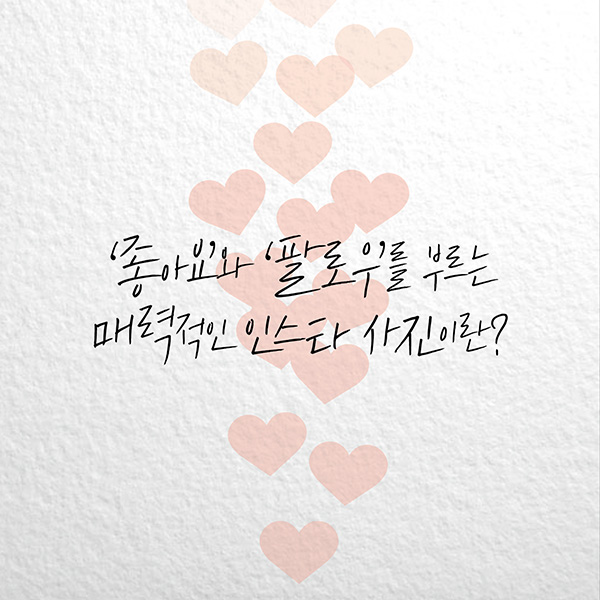 '좋아요'와 '팔로우'를 부르는
매력적인 인스타 사진이란?